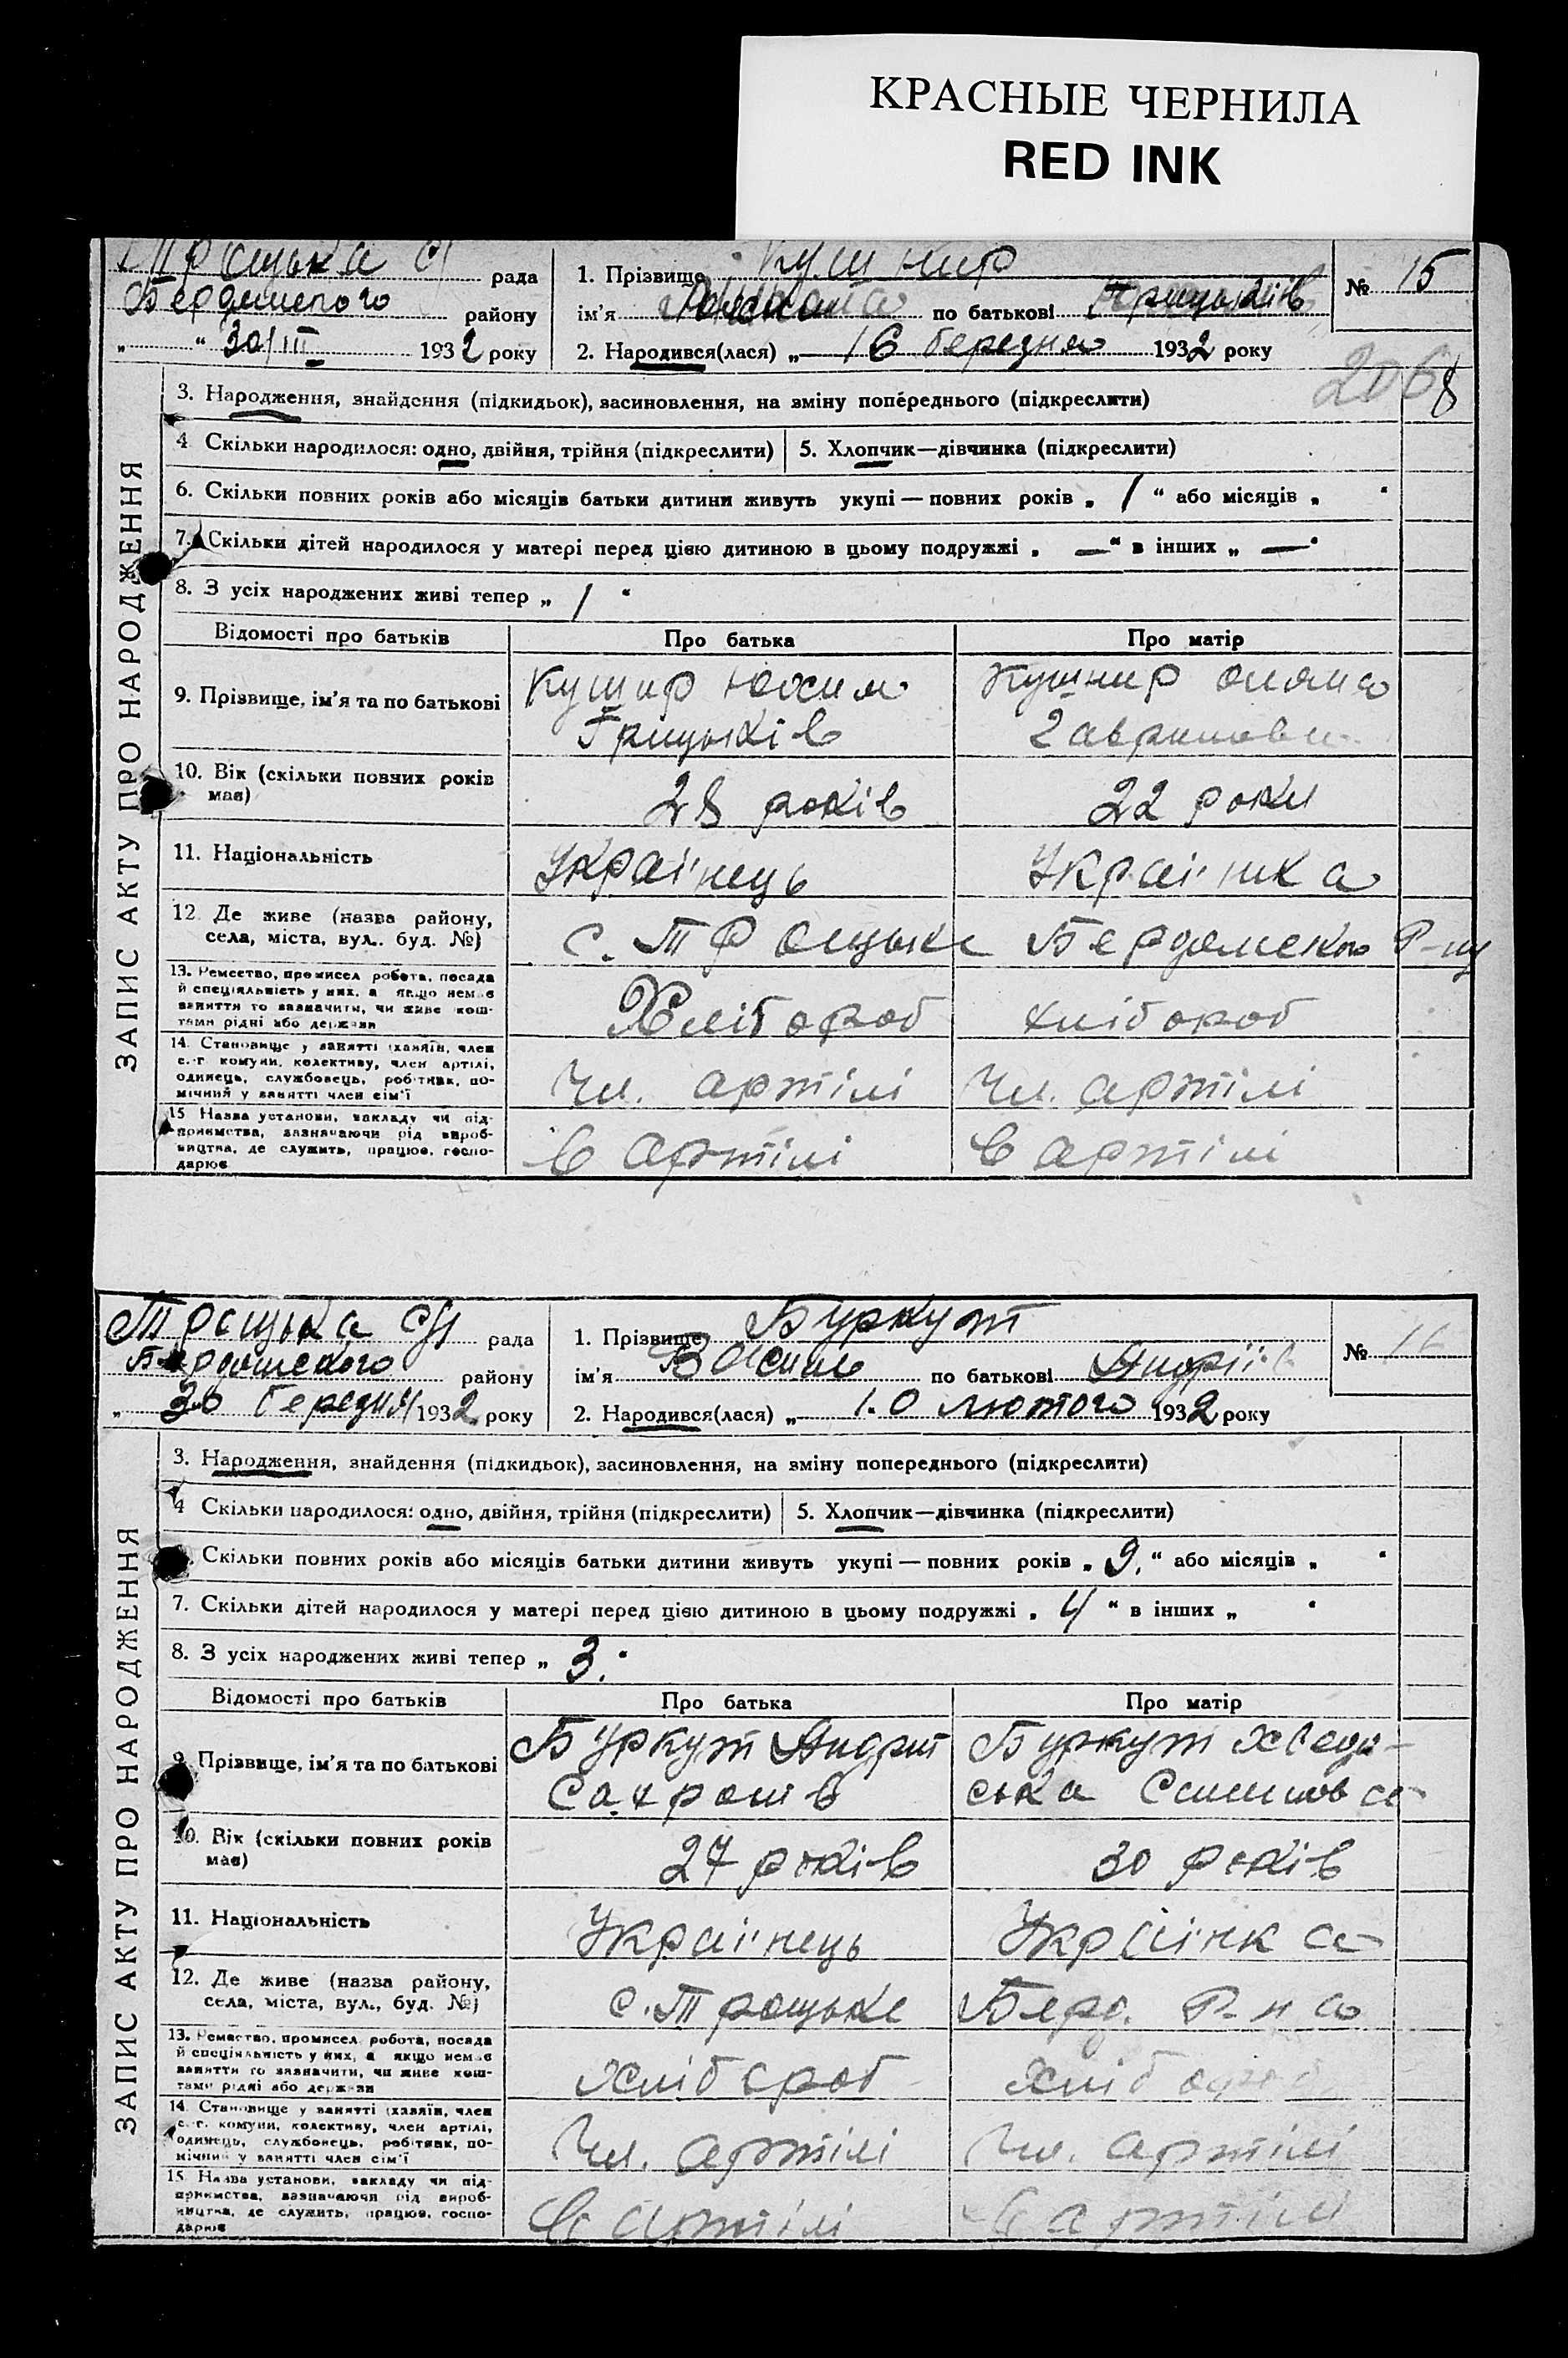 КРАСНЫЕ ЧЕРНИЛА
RED INK
Троцька рада
району
„ “ 30/III 1932 року
1. Прізвище Кушнир
ім'я по батькові
2. Народився(лася) „ 16 березня 1932 року
№ 15
206
8
ЗАПИС АКТУ ПРО НАРОДЖЕННЯ
3. Народження, знайдення (підкидьок), засиновлення, на зміну попереднього (підкреслити)
4 Скільки народилося: одно, двійня, трійня (підкреслити)
5. Хлопчик—дівчинка (підкреслити)
6. Скільки повних років або місяців батьки дитини живуть укупі — повних років „ 1 “ або місяців „ “
7. Скільки дітей народилося у матері перед цією дитиною в цьому подружжі „ — “ в інших „ — “
8. З усіх народжених живі тепер „ 1 “
Відомості про батьків
Про батька
Про матір
9. Прізвище, ім'я та по батькові
Кушнир Юхим
Грицьків
Кушнир
10. Вік (скільки повних років
має)
28 років
22 роки
11. Національність
Українець
Українка
12. Де живе (назва району,
села, міста, вул. буд. №)
с. Троцьке
Р-ну
13. Ремество, промисел робота, посада
й спеціяльність у них, а якщо немає
заняття то зазначити, чи живе кош-
тами рідні або держави
Хлібороб
хлібороб
14. Становище у занятті (хазяїн, член
с.-г. комуни, колективу, член артілі,
одинець, службовець, робітник, по-
мічний у занятті член сім'ї
Чл. артілі
Чл. артілі
15. Назва установи, закладу чи під-
приємства, зазначаючи рід вироб-
ництва, де служить, працює, госпо-
дарює
в артілі
в артілі
Троцька рада
району
„ 30 березня 1932 року
1. Прізвище Буркут
ім'я Василь по батькові Андріїв
2. Народився(лася) „ 10 лютого 1932 року
№ 16
ЗАПИС АКТУ ПРО НАРОДЖЕННЯ
3. Народження, знайдення (підкидьок), засиновлення, на зміну попереднього (підкреслити)
4 Скільки народилося: одно, двійня, трійня (підкреслити)
5. Хлопчик—дівчинка (підкреслити)
Скільки повних років або місяців батьки дитини живуть укупі — повних років „ 9. “ або місяців „ “
7. Скільки дітей народилося у матері перед цією дитиною в цьому подружжі „ 4 “ в інших „ “
8. З усіх народжених живі тепер „ 3. “
Відомості про батьків
Про батька
Про матір
9. Прізвище, ім'я та по батькові
Буркут Андрій
Буркут Хведо-
ська
10. Вік (скільки повних років
має)
27 років
30 років
11. Національність
Українець
Українка
12. Де живе (назва району,
села, міста, вул., буд. №)
с. Троцьке
Берд. Р-на
13. Ремество, промисел робота, посада
й спеціяльність у них, а якщо немає
заняття то зазначити, чи живе кош-
тами рідні або держави
хлібороб
хлібороб
14. Становище у занятті (хазяїн, член
с.-г. комуни, колективу, член артілі,
одинець, службовець, робітник, по-
мічний у занятті член сім'ї
Чл. артілі
Чл. артілі
15. Назва установи, закладу чи під-
приємства, зазначаючи рід вироб-
ництва, де служить, працює, госпо-
дарює
в артілі
в артілі